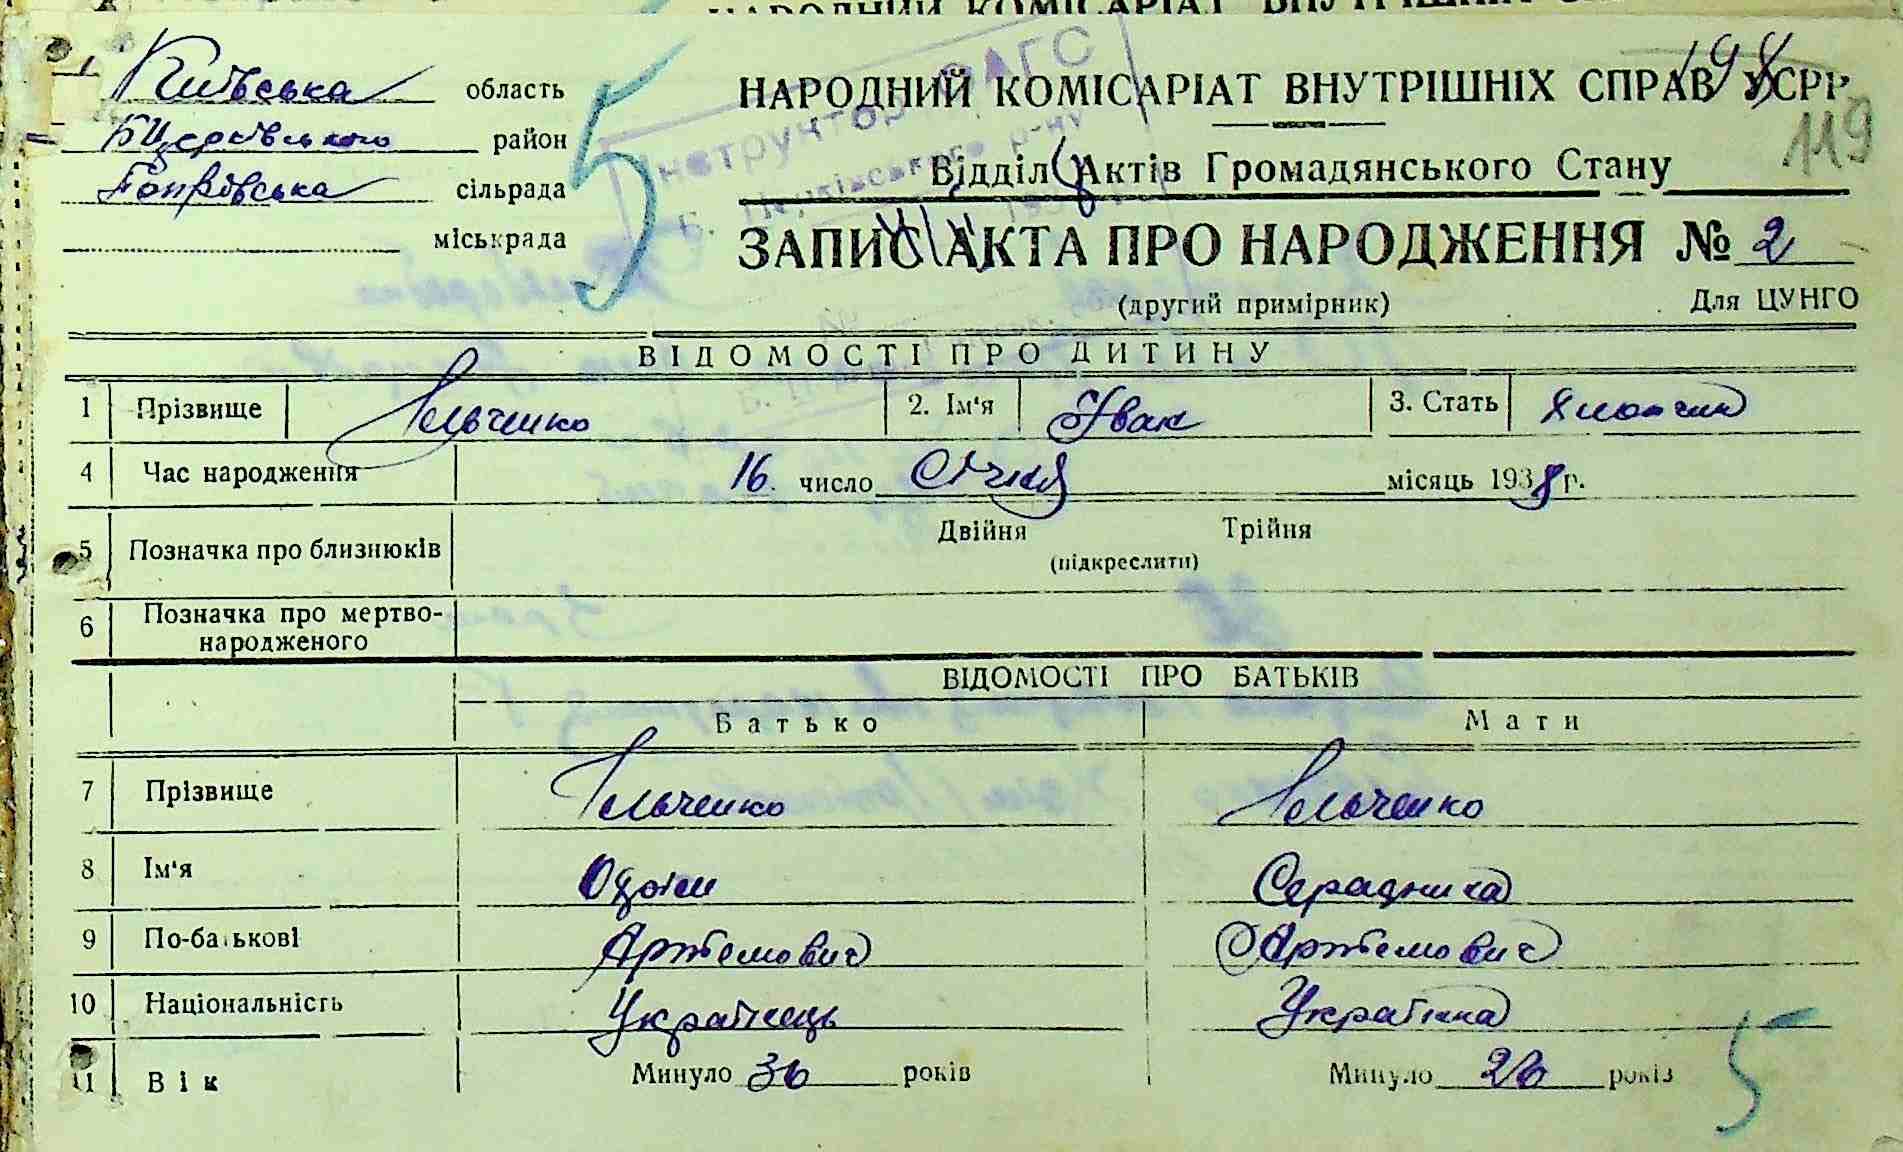 Київська область
БЦерківського район
сільрада
міськрада
НАРОДНИЙ КОМІСАРІАТ ВНУТРІШНІХ СПРАВ УСРР
198
119
Відділ Актів Громадянського Стану
ЗАПИС АКТА ПРО НАРОДЖЕННЯ № 2
(другий примірник) Для ЦУНГО
5
ВІДОМОСТІ ПРО ДИТИНУ
1 Прізвище Гельченко 2. Ім'я Іван 3. Стать Хлопчик
4 Час народження 16 число Січня місяць 1938 р.
5 Позначка про близнюків Двійня Трійня
(підкреслити)
6 Позначка про мертво-
народженого
ВІДОМОСТІ ПРО БАТЬКІВ
Батько Мати
7 Прізвище Гельченко Гельченко
8 Ім'я
9 По-батькові Артемович Артемович
10 Національність Українець Українка
11 Вік Минуло 36 років Минуло 26 років
5